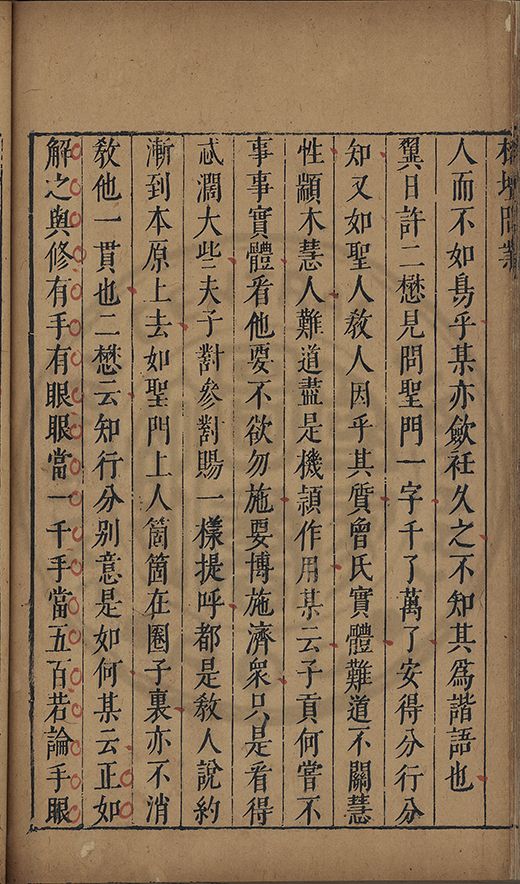 榕壇問業
人而不如易乎某亦歛衽久之不知其爲諧語也
翼日許二懋見問聖門一字千了萬了安得分行分
知又如聖人敎人因乎其質曾氏實體難道不關慧
性顓木慧人難道盡是機頴作用某云子貢何嘗不
事事實體看他要不欲勿施要博施濟衆只是看得
忒濶大些夫子對參對賜一樣提呼都是敎人說約
漸到本原上去如聖門上人箇箇在圈子裏亦不消
敎他一貫也二懋云知行分別意是如何某云正如
解之與修有手有眼眼當一千手當五百若論手眼